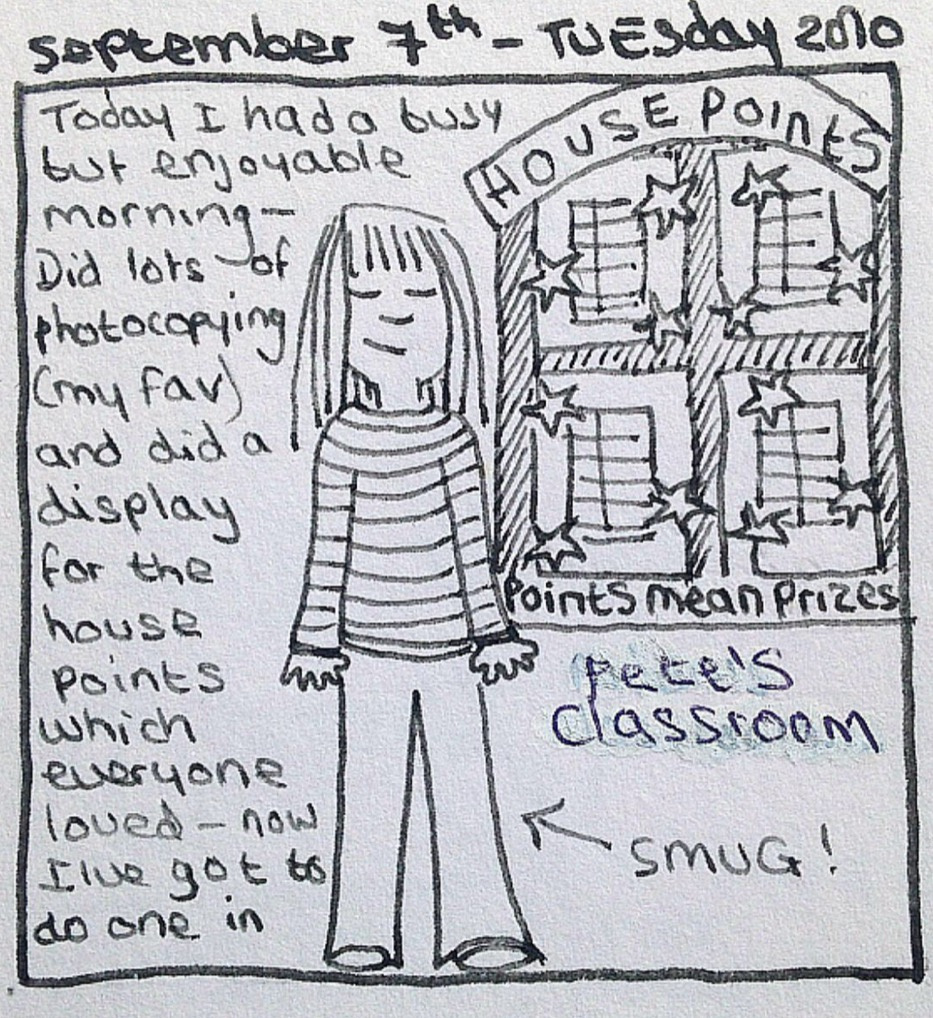 September 7th - TUESday 2010
Today I had a busy
but enjoyable
morning-
Did lots of
photocopying
(my fav)
and did a
display
for the
house
points
which
everyone
loved - now
I've got to
do one in
Pete's
classroom
HOUSE POINTS
Points mean prizes
SMUG!